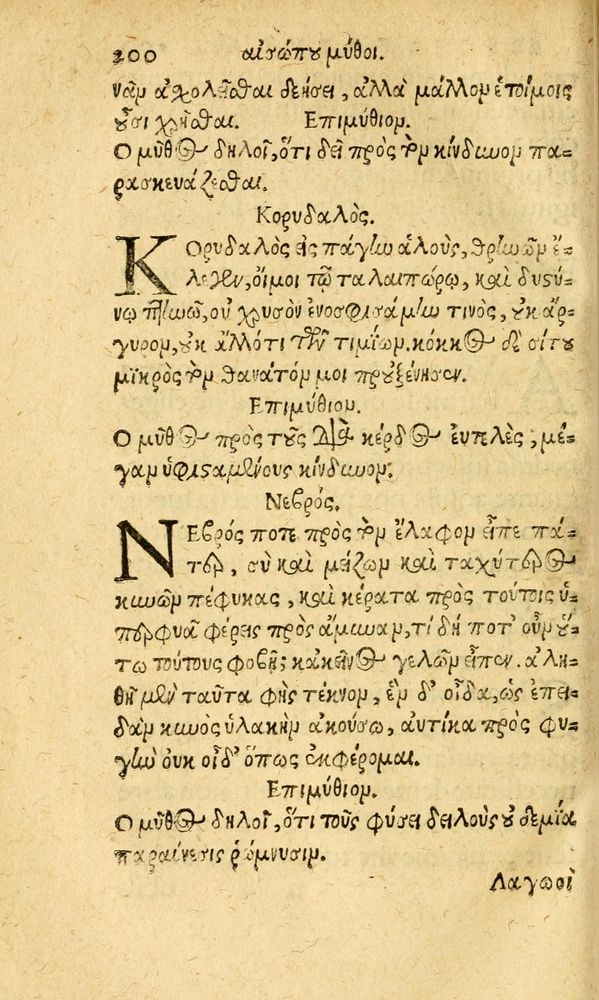 200 αἰσώπου μῦθοι.
νᾶν ἀσχολεῖσθαι δεήσει, ἀλλὰ μᾶλλον ἑτοίμοις
οὖσι χρῆσθαι. Επιμύθιον.
Ο μῦθος δηλοῖ, ὅτι δεῖ πρὸς τὸν κίνδυνον πα-
ρασκευάζεσθαι.
Κορυδαλὸς.
ΚΟρυδαλὸς εἰς πάγην ἁλοὺς, θρηνῶν ἔ-
λεγεν, οἴμοι τῷ ταλαιπώρῳ, καὶ δυστύ-
νῳ πτηνῷ, οὐ χρυσὸν ἐνοσφισάμην τινὸς, οὐκ ἄρ-
γυρον, οὐκ ἄλλό τι τῶν τιμίων. κόκκος δὲ σίτου
μικρὸς τὸν θανατόν μοι προυξένησεν.
Επιμύθιον.
Ο μῦθος πρὸς τοὺς διὰ κέρδος εὐτελὲς, μέ-
γαν ὑφισταμένους κίνδυνον.
Νεβρός.
ΝΕβρός ποτε πρὸς τὸν ἔλαφον εἶπε πά-
τερ, σὺ καὶ μείζων καὶ ταχύτερος
κυνῶν πέφυκας, καὶ κέρατα πρὸς τούτοις ὑ-
περφυᾶ φέρεις πρὸς ἄμυναν, τί δή ποτ' οὖν οὕ-
τω τούτους φοβῇ; κἀκεῖνος γελῶν εἶπεν. ἀλη-
θῆ μὲν ταῦτα φῂς τέκνον, ἓν δ' οἶδα, ὡς ἐπει-
δὰν κυνὸς ὑλακὴν ἀκούσω, αὐτίκα πρὸς φυ-
γὴν οὐκ οἶδ' ὅπως ἐκφέρομαι.
Επιμύθιον.
Ο μῦθος δηλοῖ, ὅτι τοὺς φύσει δειλοὺς οὐδεμία
παραίνεσις ῥώννυσιν.
Λαγωοὶ